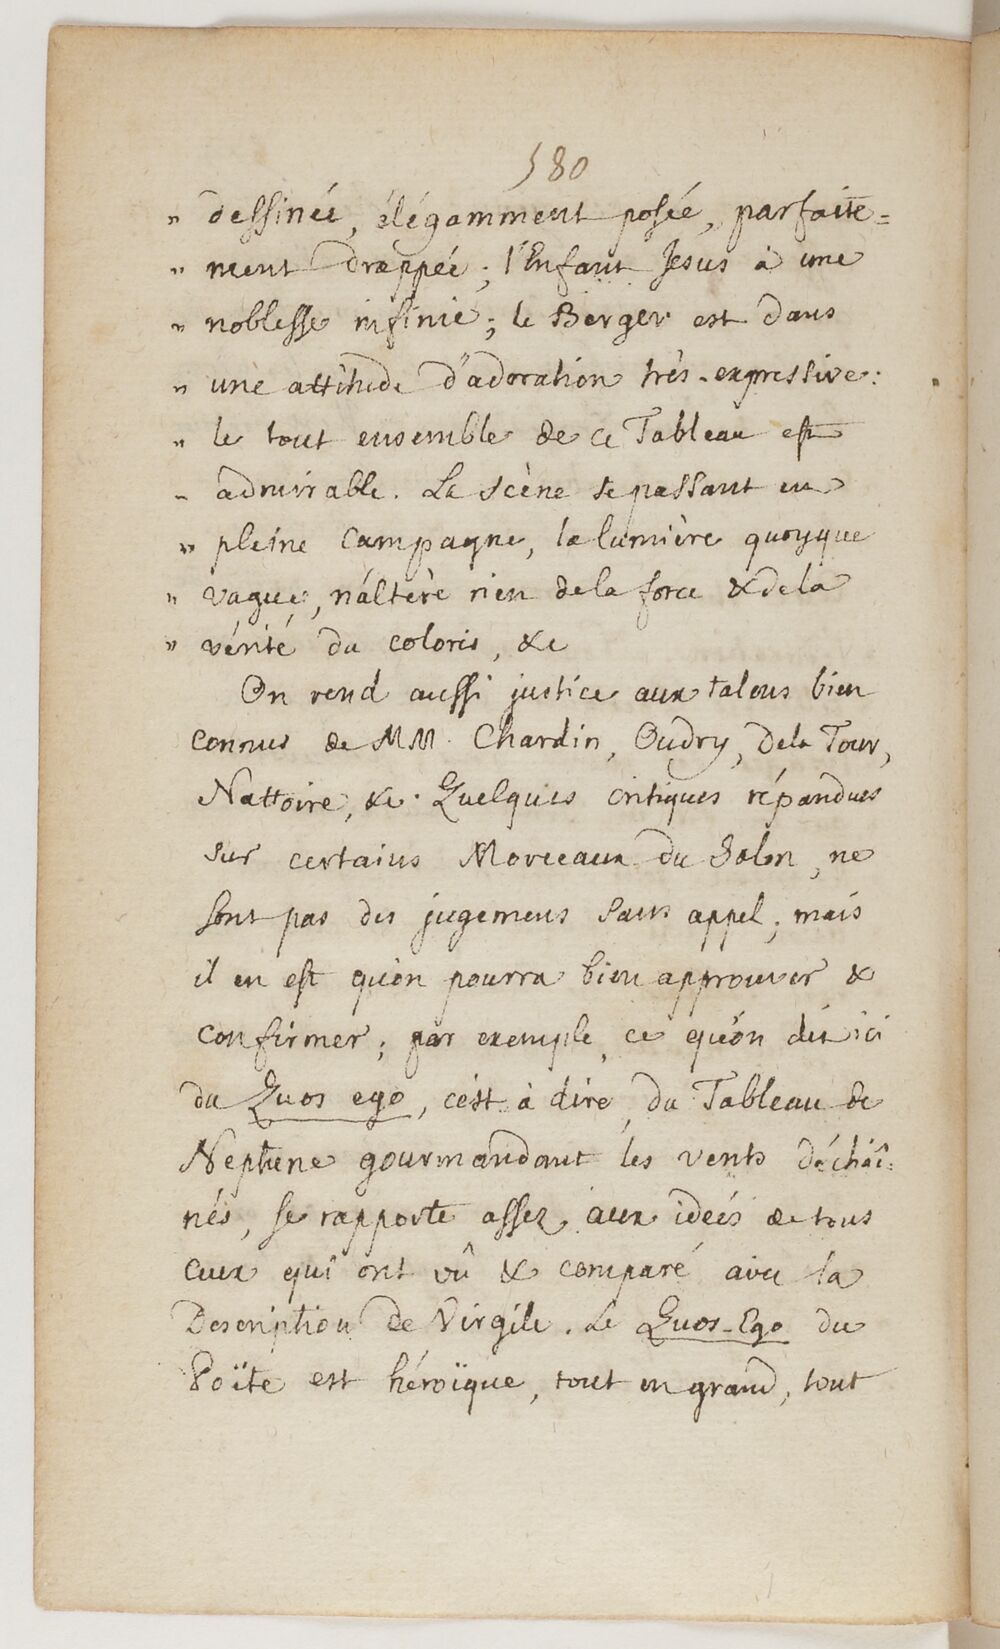 580
" dessinée, élégamment posée, parfaite=
" ment drappée; l'Enfant Jesus a une
" noblesse infinie; le Berger est dans
" une attitude d'adoration très-expressive:
" le tout ensemble de ce Tableau est
" admirable. La scène se passant en
" pleine campagne, la lumière quoyque
" vague, n'altère rien de la force & de la
" vérité du coloris, &c
On rend aussi justice aux talens bien
connus de MM. Chardin, Oudry, Dela Tour,
Nattoire, &c. Quelques critiques répandues
sur certains Morceaux du Salon, ne
sont pas des jugemens sans appel; mais
il en est qu'on pourra bien approuver &
confirmer; par exemple, ce qu'on dit ici
du Quos ego, c'est à dire, du Tableau de
Neptune gourmandant les vents déchaî=
nés, se rapporte assez aux idées de tous
ceux qui ont vû & comparé avec la
Description de Virgile. Le Quos-Ego du
Poëte est héroïque, tout en grand, tout